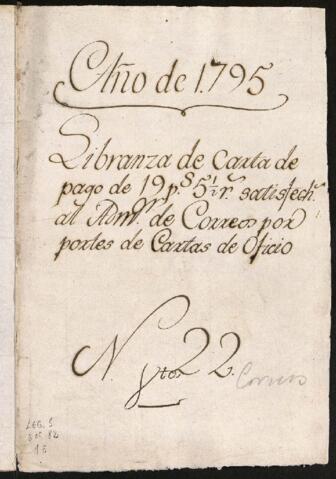 Año de 1795
Libranza de Carta de
pago de 19 p.s 5 1/2 r.s satisfech.s
al Adm.or de Correos por
portes de Cartas de Oficio
N. 22.
Correos
LEG. 5